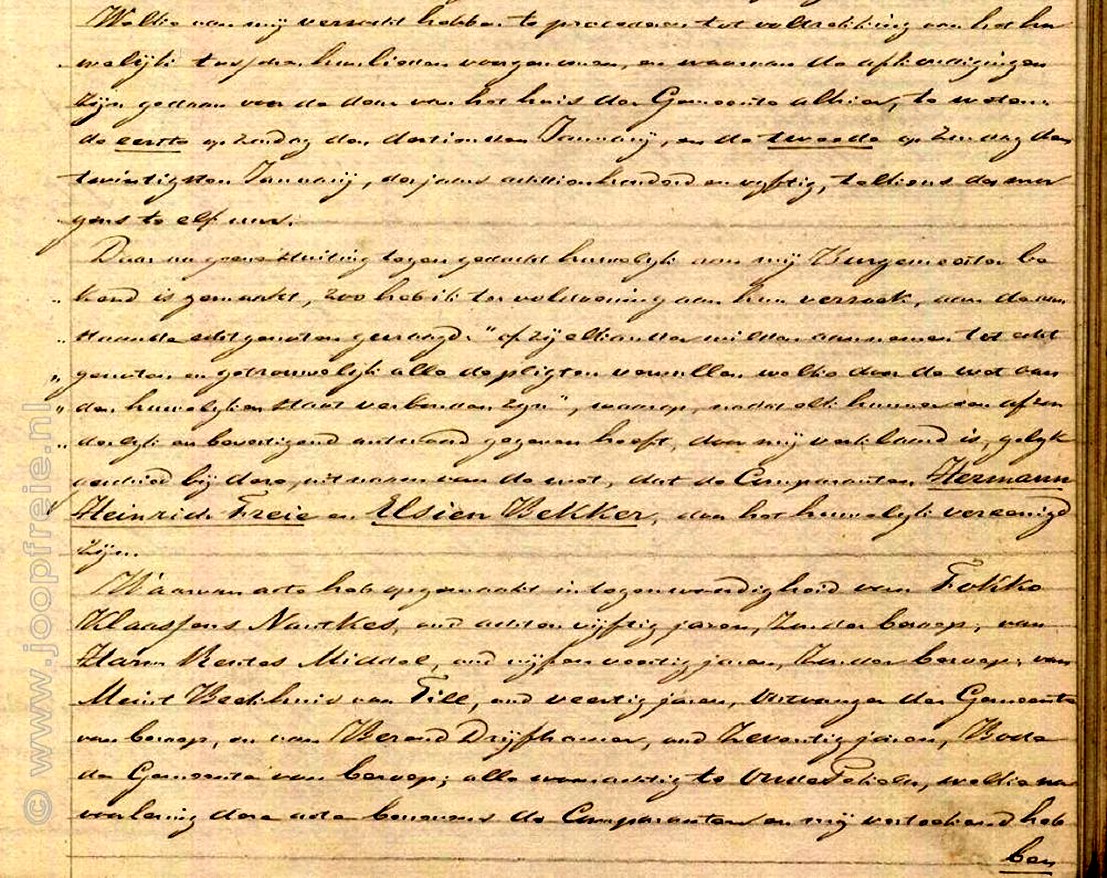 Welke aan mij verzocht hebben te procederen tot voltrekking van het hu
welijk tusschen hunlieden voorgenomen, en waarvan de afkondigingen
zijn gedaan voor de deur van het huis der Gemeente alhier, te weten:
de eerste op zondag den dertienden Januarij, en de tweede op Zondag den
twintigsten Januarij, des jaars achttienhonderd en vijftig, telkens des mor
gens te elf uur.
Daar nu geene stuiting tegen gedacht huwelijk aan mij Burgemeester be
„ kend is gemaakt, zoo heb ik ter voldoening aan hun verzoek, aan de aan
„ staande echtgenoten gevraagd: "of zij elkander wilden aannemen tot echt
„ genoten en getrouwelijk alle de pligten vervullen welke door de wet aan
„ den huwelijken staat verbonden zijn", waarop, nadat elk hunner een afzon
„ derlijk en bevestigend antwoord gegeven heeft, door mij verklaard is, gelijk
geschied bij deze, uit naam van de wet, dat de Comparanten Hermann
Heinrich Freie en Elsien Bekker, door het huwelijk vereenigd
zijn.
Waarvan acte heb opgemaakt in tegenwoordigheid van Fokko
Klaassens Nantkes, oud achten vijftig jaren, Zonder beroep; van
Harm Rentes Middel, oud vijfen veertig jaren, Zonder beroep; van
Meint Beckhuis van Till, oud veertig jaren, Ontvanger der Gemeente
van beroep, en van Berend Drijfhamer, oud Zeventig jaren, Bode
der Gemeente van beroep; alle woonachtig te Oude Pekela, welke na
voorlezing dezer acte benevens de Comparanten en mij verteekend heb
ben
© www.joopfreie.nl